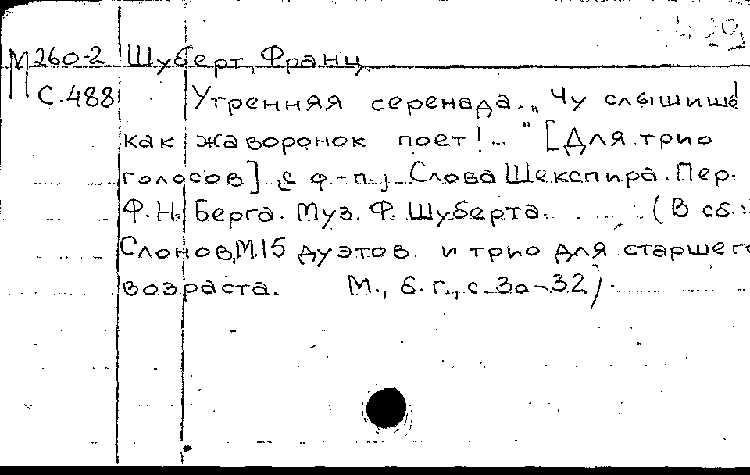 М260-2 Шуберт, Франц
С.488 Утренняя серенада. „Чу слышишь
как жаворонок поет!.." [Для трио
голосов] с ф.-п., Слова Шекспира. Пер.
Ф.Н. Берга. Муз. Ф. Шуберта. (В сб.:
Слонов, М. 15 дуэтов и трио для старшего
возраста. М., б.г., с 30-32)